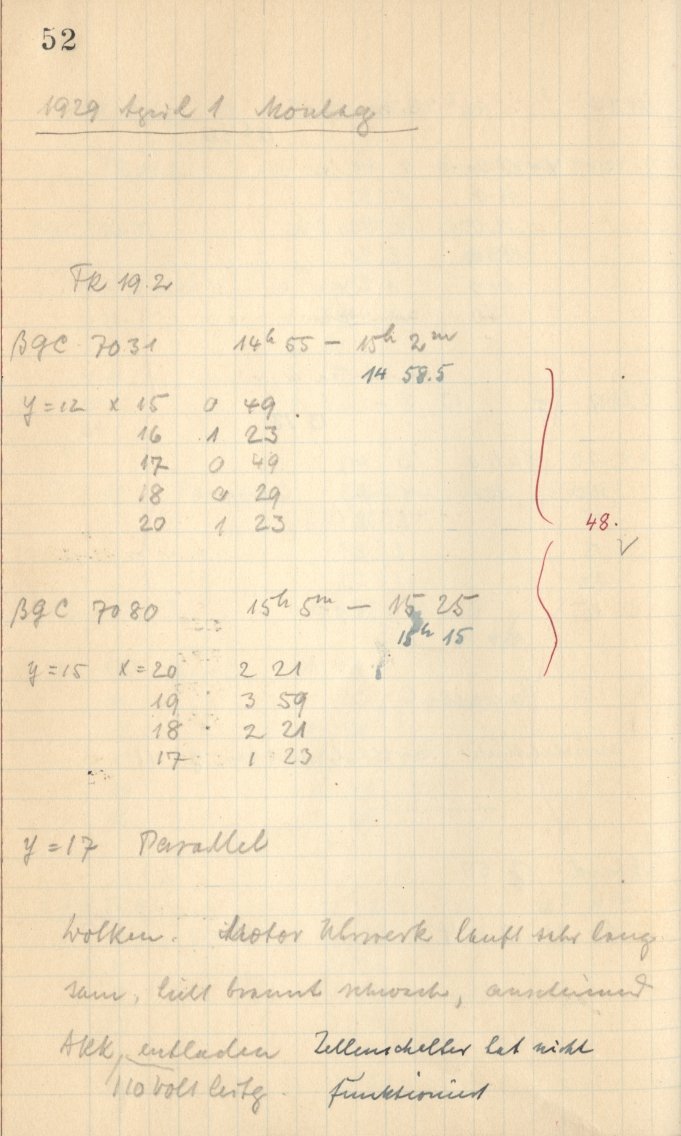 52
1929 April 1 Montag
FK 19.2
BGC 7031 14h 55 – 15h 2m
14 58.5
y = 12 x 15 0 49
16 1 23
17 0 49
18 0 29
20 1 23
48.
BGC 7080 15h 5m – 15 25
15h 15
y = 15 x = 20 2 21
19 3 59
18 2 21
17 1 23
y = 17 Parallel
Wolken. Motor Uhrwerk lauft sehr lang
sam, brennt schwach, anscheinend
Akk. entladen Zellenschalter hat nicht
110 Volt Leitg. funktioniert